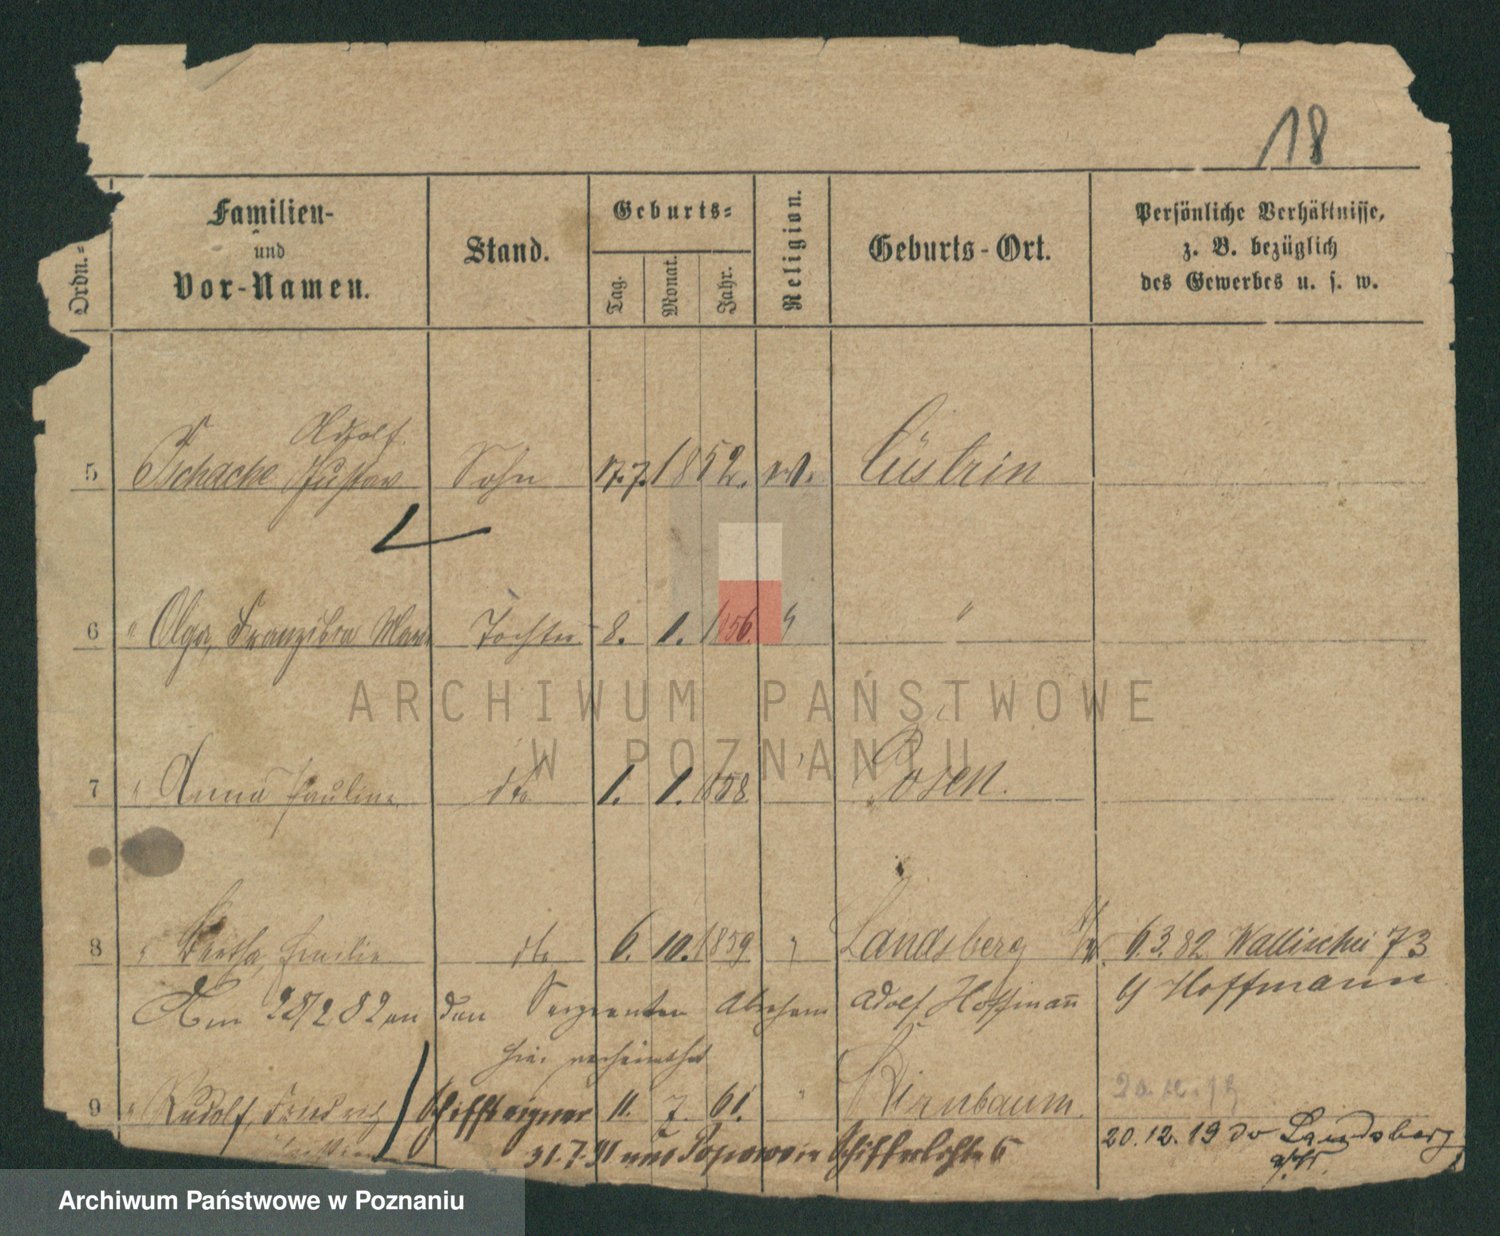 18
Ordn.-
Familien-
und
Vor-Namen.
Stand.
Geburts-
Tag.
Monat.
Jahr.
Religion.
Geburts-Ort.
Persönliche Verhältnisse,
z. B. bezüglich
des Gewerbes u. s. w.
Adolf
5 Tschacke Gustav Sohn 17. 7. 1852. ev. Cüstrin
6 " Olga, Franziska Marie Tochter 8. 1. 1856. " "
7 " Anna Pauline do 1. 1. 1858 Posen.
8 " Bertha, Emilie do 6. 10. 1859 " Landsberg a/W. 6.3.82 Wallischei 73
b/ Hoffmann
Am 28/2 82 an den Sergeanten Abraham Adolf Hoffmann
hier verheirathet
9 " Rudolf, Friedrich Schiffseigner 11. 7. 61. " Birnbaum. 20.12.19
31.7.91 aus Schifferlohle 6
20.12.19 Landsberg
a/W.
ARCHIWUM PAŃSTWOWE
W POZNANIU
Archiwum Państwowe w Poznaniu